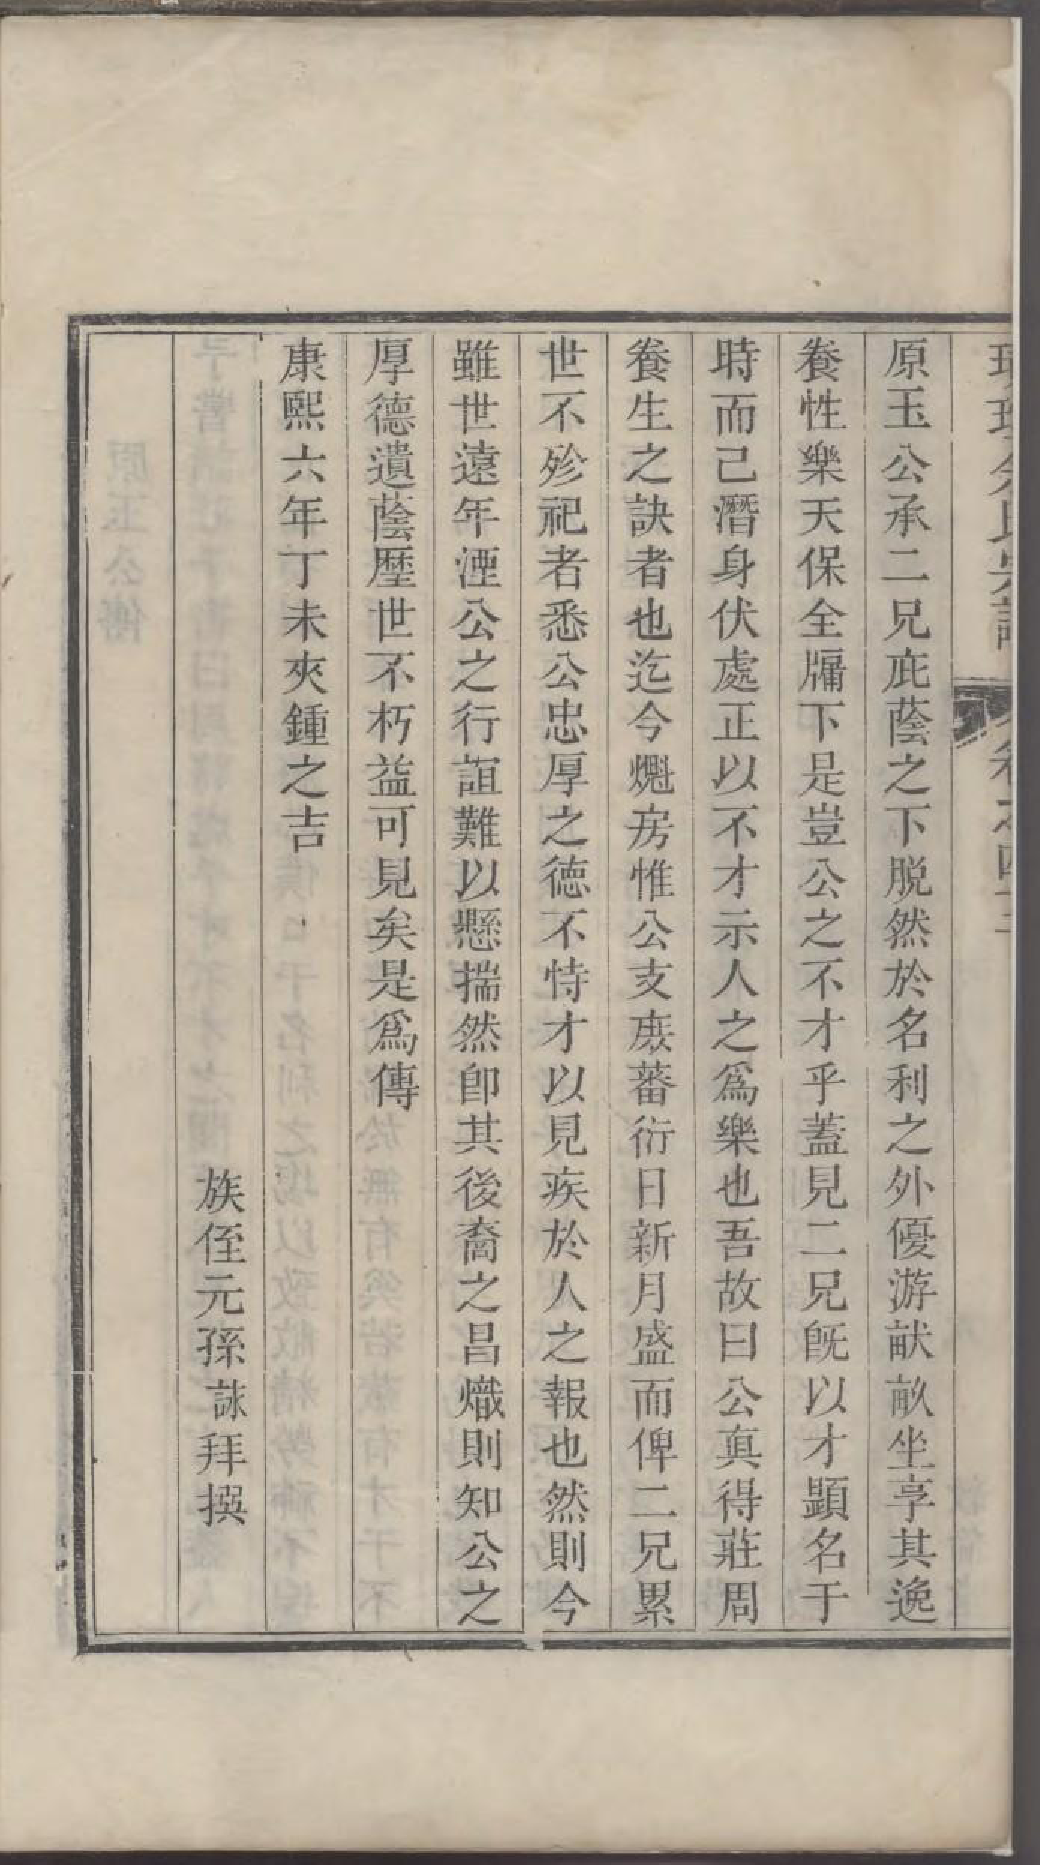 原玉公承二兄庇蔭之下脱然於名利之外優游畎畝坐享其逸
養性樂天保全牖下是豈公之不才乎蓋見二兄旣以才顯名于
時而己潛身伏處正以不才示人之爲樂也吾故曰公眞得莊周
養生之訣者也迄今爕房惟公支庶蕃衍日新月盛而俾二兄累
世不殄祀者悉公忠厚之德不恃才以見疾於人之報也然則今
雖世遠年湮公之行誼難以懸揣然卽其後裔之昌熾則知公之
厚德遺蔭歷世不朽益可見矣是爲傳
康熙六年丁未夾鍾之吉
族侄元孫詠拜撰